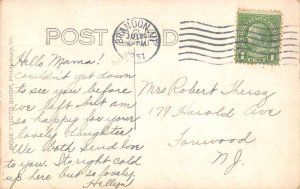 POST CARD
BRANDON, VT.
1931
Hello Mama!
Couldn't get down
to see you before
we left but am
so happy for your
lonely daughter!
We both send love
to you. It's right cold
up here but so lovely.
Hellyn
Mrs Robert Theisz
179 Harold Ave
Fanwood
N.J.